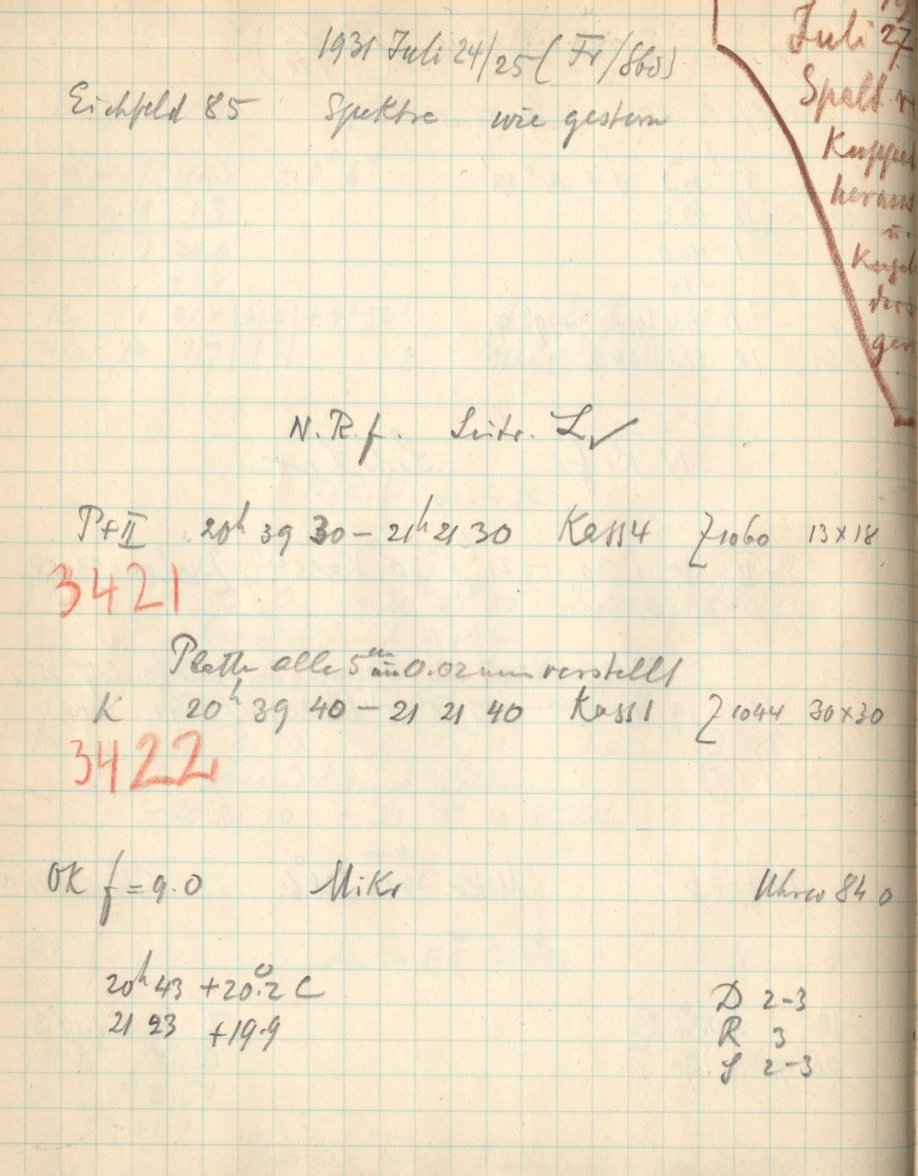 1931 Juli 24/25 (Fr/Sbd)
Eichfeld 85 Spektra wie gestern
Juli 27
Spalt
Kuppel
heraus
u.
N.R.f. Leitr. L ✓
Pf II 20h 39 30 – 21h 21 30 Kass 4 Z 1060 13x18
3421
Platte alle 5m um 0.02 mm verstellt
K 20h 39 40 – 21 21 40 Kass 1 Z 1044 30x30
3422
OK f = 9.0 Mikr Uhrw 84.0
20h 43 +20°.2 C
21 23 +19.9
D 2-3
R 3
S 2-3